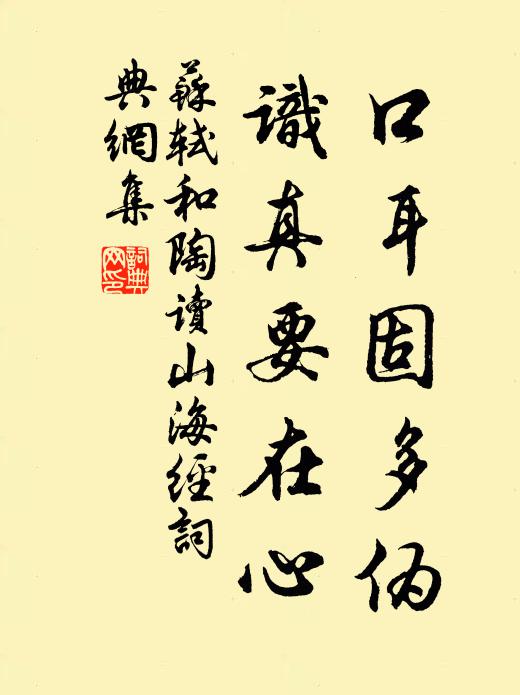 口耳固多偽
識真要在心
蘇軾和陶讀山海經詞
典網集
詞典
网印